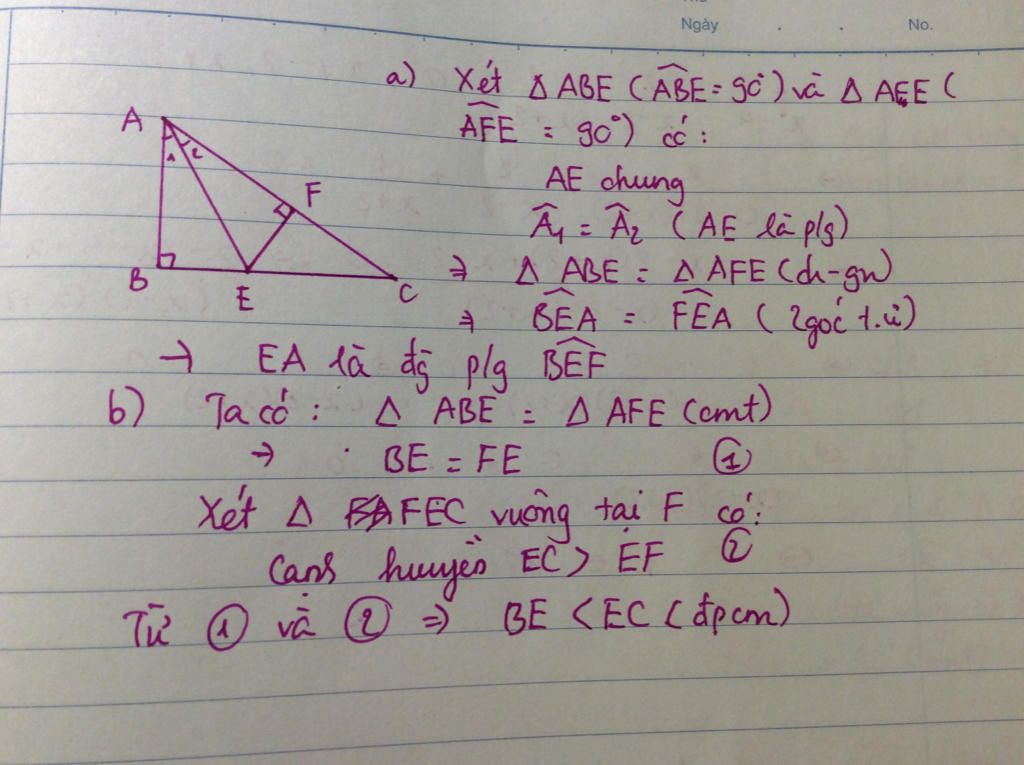 Ngày . . No.
a) Xét Δ ABE (ABE = 90°) và Δ AEE (
AFE = 90°) có:
A
1 2
F
B
E
C
AE chung
Â₁ = Â₂ (AE là p/g)
⇒ Δ ABE = Δ AFE (ch-gn)
⇒ BÊA = FÊA (2 góc t.ư)
→ EA là đg p/g BÊF
b) Ta có: Δ ABE = Δ AFE (cmt)
→ BE = FE ①
Xét Δ FEC vuông tại F có:
Cạnh huyền EC > EF ②
Từ ① và ② ⇒ BE < EC (đpcm)